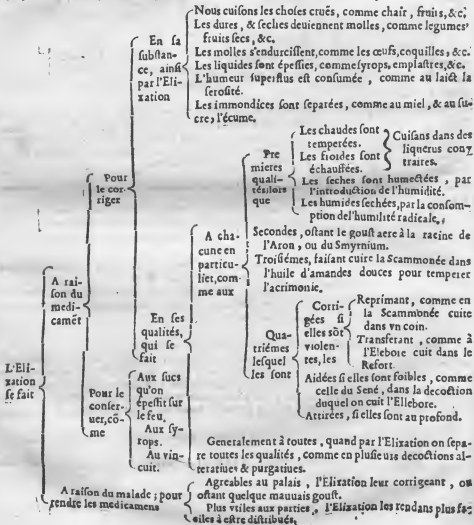 L'Eli-
xation
se fait
A rai-
son du
medi-
camét
Pour
le cor-
riger
En sa
substan-
ce, ainsi
par l'Eli-
xation
Nous cuisons les choses cruës, comme chair, fruits, &c.
Les dures, & seches deuiennent molles, comme legumes
fruits secs, &c.
Les molles s'endurcissent, comme les œufs, coquilles, &c.
Les liquides sont épessies, comme syrops, emplastres, &c.
L'humeur superflus est consumée, comme au laict la
serosité.
Les immondices sont separées, comme au miel, & au su-
cre, l'écume.
En ses
qualités,
qui se
fait
A cha-
cune en
particu-
lier, com-
me aux
Pre
mieres
quali-
tés, lors
que
Les chaudes sont
temperées.
Les froides sont
échauffées.
Cuisans dans des
liquerus con-
traires.
Les seches sont humectées, par
l'introduction de l'humidité.
Les humides sechées, par la consom-
ption de l'humilité radicale.
Secondes, ostant le goust acre à la racine de
l'Aron, ou du Smyrnium.
Troisiémes, faisant cuire la Scammonée dans
l'huile d'amandes douces pour temperer
l'acrimonie.
Qua-
triémes
lesquel
les sont
Corri-
gées si
elles sōt
violen-
tes, les
Reprimant, comme en
la Scammonée cuite
dans vn coin.
Transferant, comme à
l'Elebore cuit dans le
Refort.
Aidées si elles sont foibles, comme
celle du Sené, dans la decoction
duquel on cuit l'Ellebore.
Attirées, si elles sont au profond.
Generalement à toutes, quand par l'Elixation on sepa-
re toutes les qualités, comme en plusieurs decoctions al-
teratiues & purgatiues.
Pour le
conser-
uer, cō-
me
Aux sucs
qu'on
épessit sur
le feu.
Aux sy-
rops.
Au vin
cuit.
A raison du malade; pour
rendre les medicamens
Agreables au palais, l'Elixation leur corrigeant, ou
ostant quelque mauuais goust.
Plus vtiles aux parties, l'Elixation les rendans plus fa-
ciles à estre distribués.